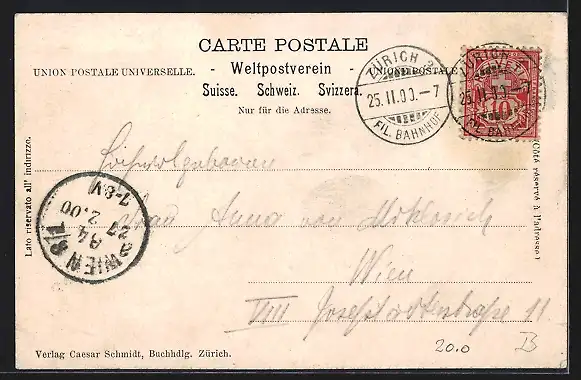 CARTE POSTALE
UNION POSTALE UNIVERSELLE. - Weltpostverein - UNIONE POSTALE
Suisse. Schweiz. Svizzera.
Nur für die Adresse.
ZÜRICH 2
25.II.00.-7
FIL. BAHNHOF
ZÜRICH
25.II.00.-7
FIL. BAHNHOF
10
Lato riservato all' indirizzo.
(Côté réservé à l'adresse)
Hochwolgeboren
Frau Anna von Miklosich
Wien
VIII Josefstädterstraße 11
WIEN 8/1
84
27 2.00
7-8.V
20.0 B
Verlag Caesar Schmidt, Buchhdlg. Zürich.